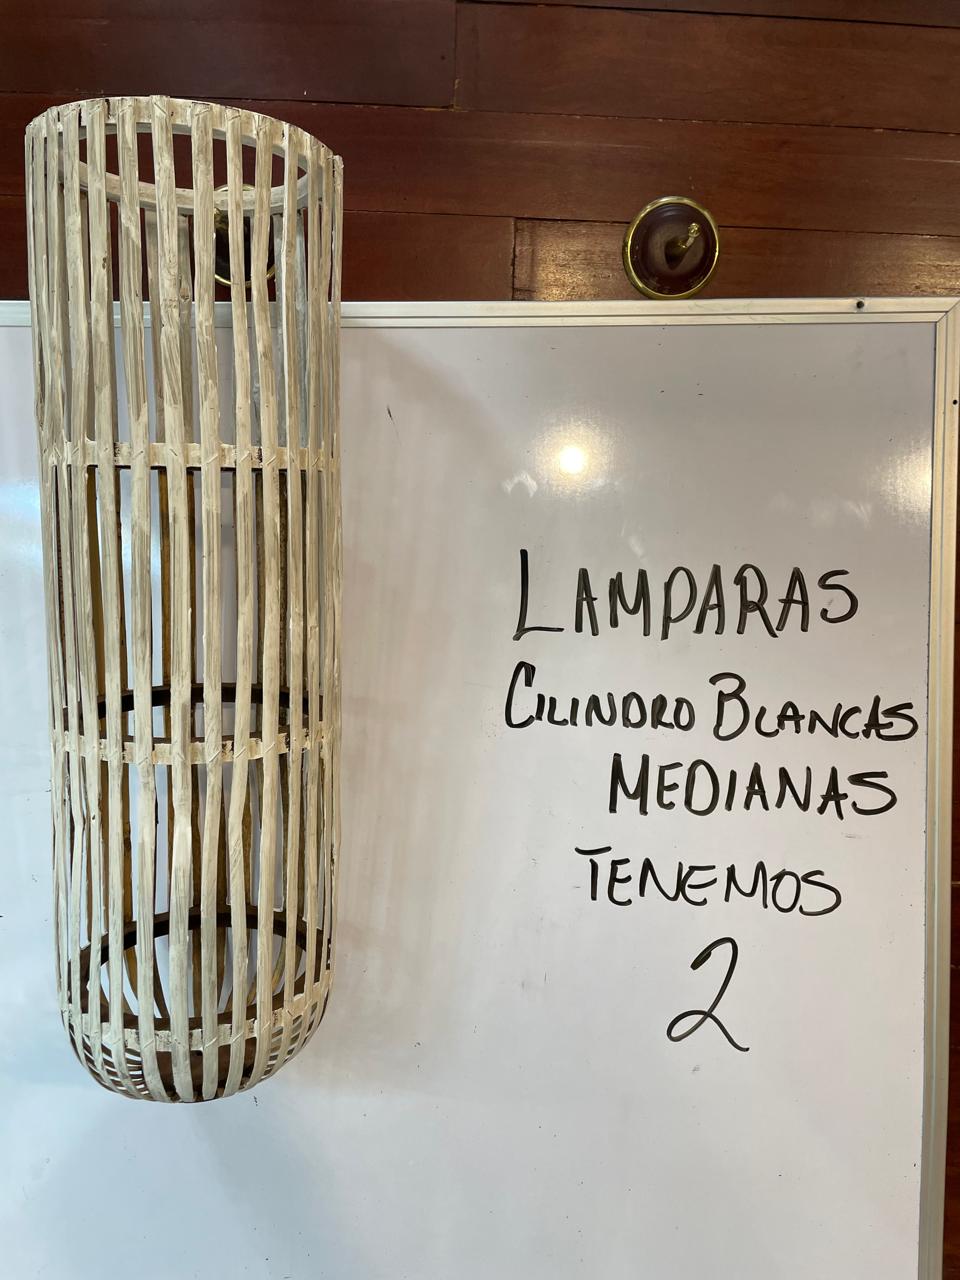 LAMPARAS
CILINDRO BLANCAS
MEDIANAS
TENEMOS
2